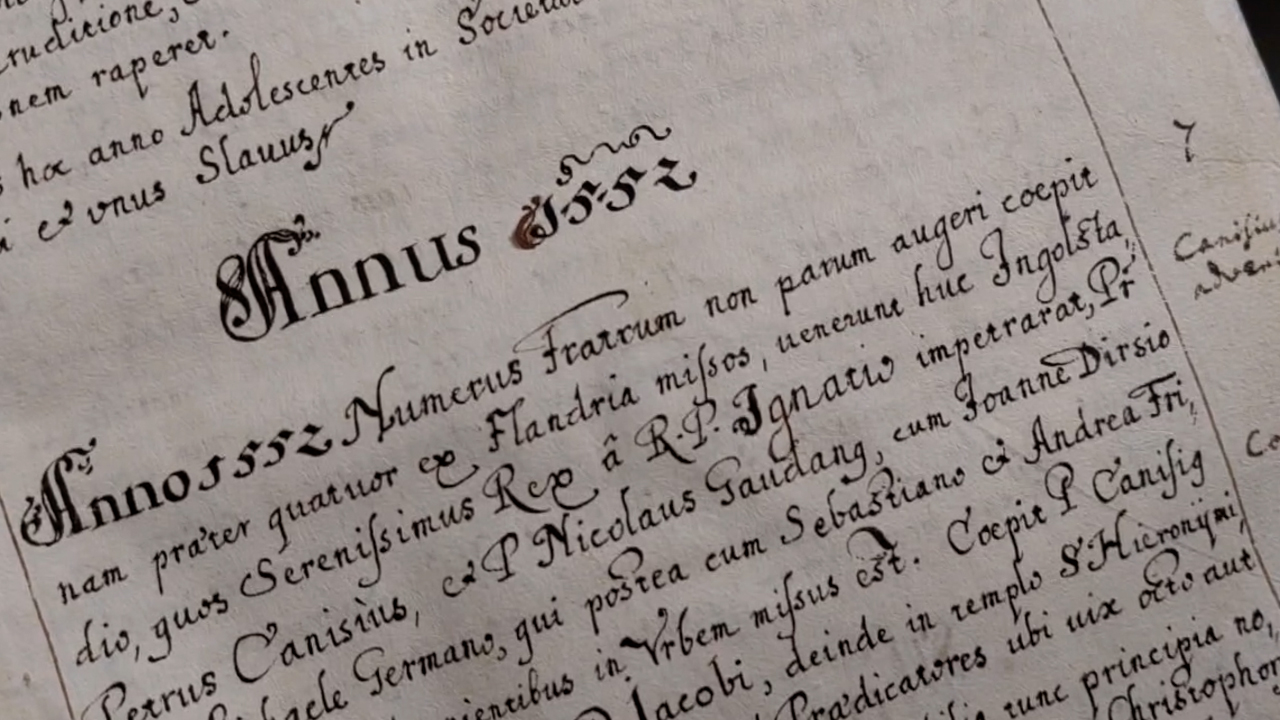 ruditione,
nem raperet.
hoc anno Adolescentes in Societat
et vnus Slauus
Annus 1552
7
Anno 1552 Numerus Fratrum non parum augeri coepit
nam præter quatuor ex Flandria missos, uenerunt huc Ingolsta,
dio, quos Serenissimus Rex â R.P. Ignatio impetrarat, Pr
Petrus Canisius, et P Nicolaus Gaudang, cum Joanne Dirsio
Germano, qui postea cum Sebastiano et Andrea Fri,
in Vrbem missus est. Coepit P Canisig
Jacobi, deinde in templo S Hieronÿmi,
Prædicatores ubi uix octo aut
tunc principia no,
Christophor
Canisiu
adueni
Co